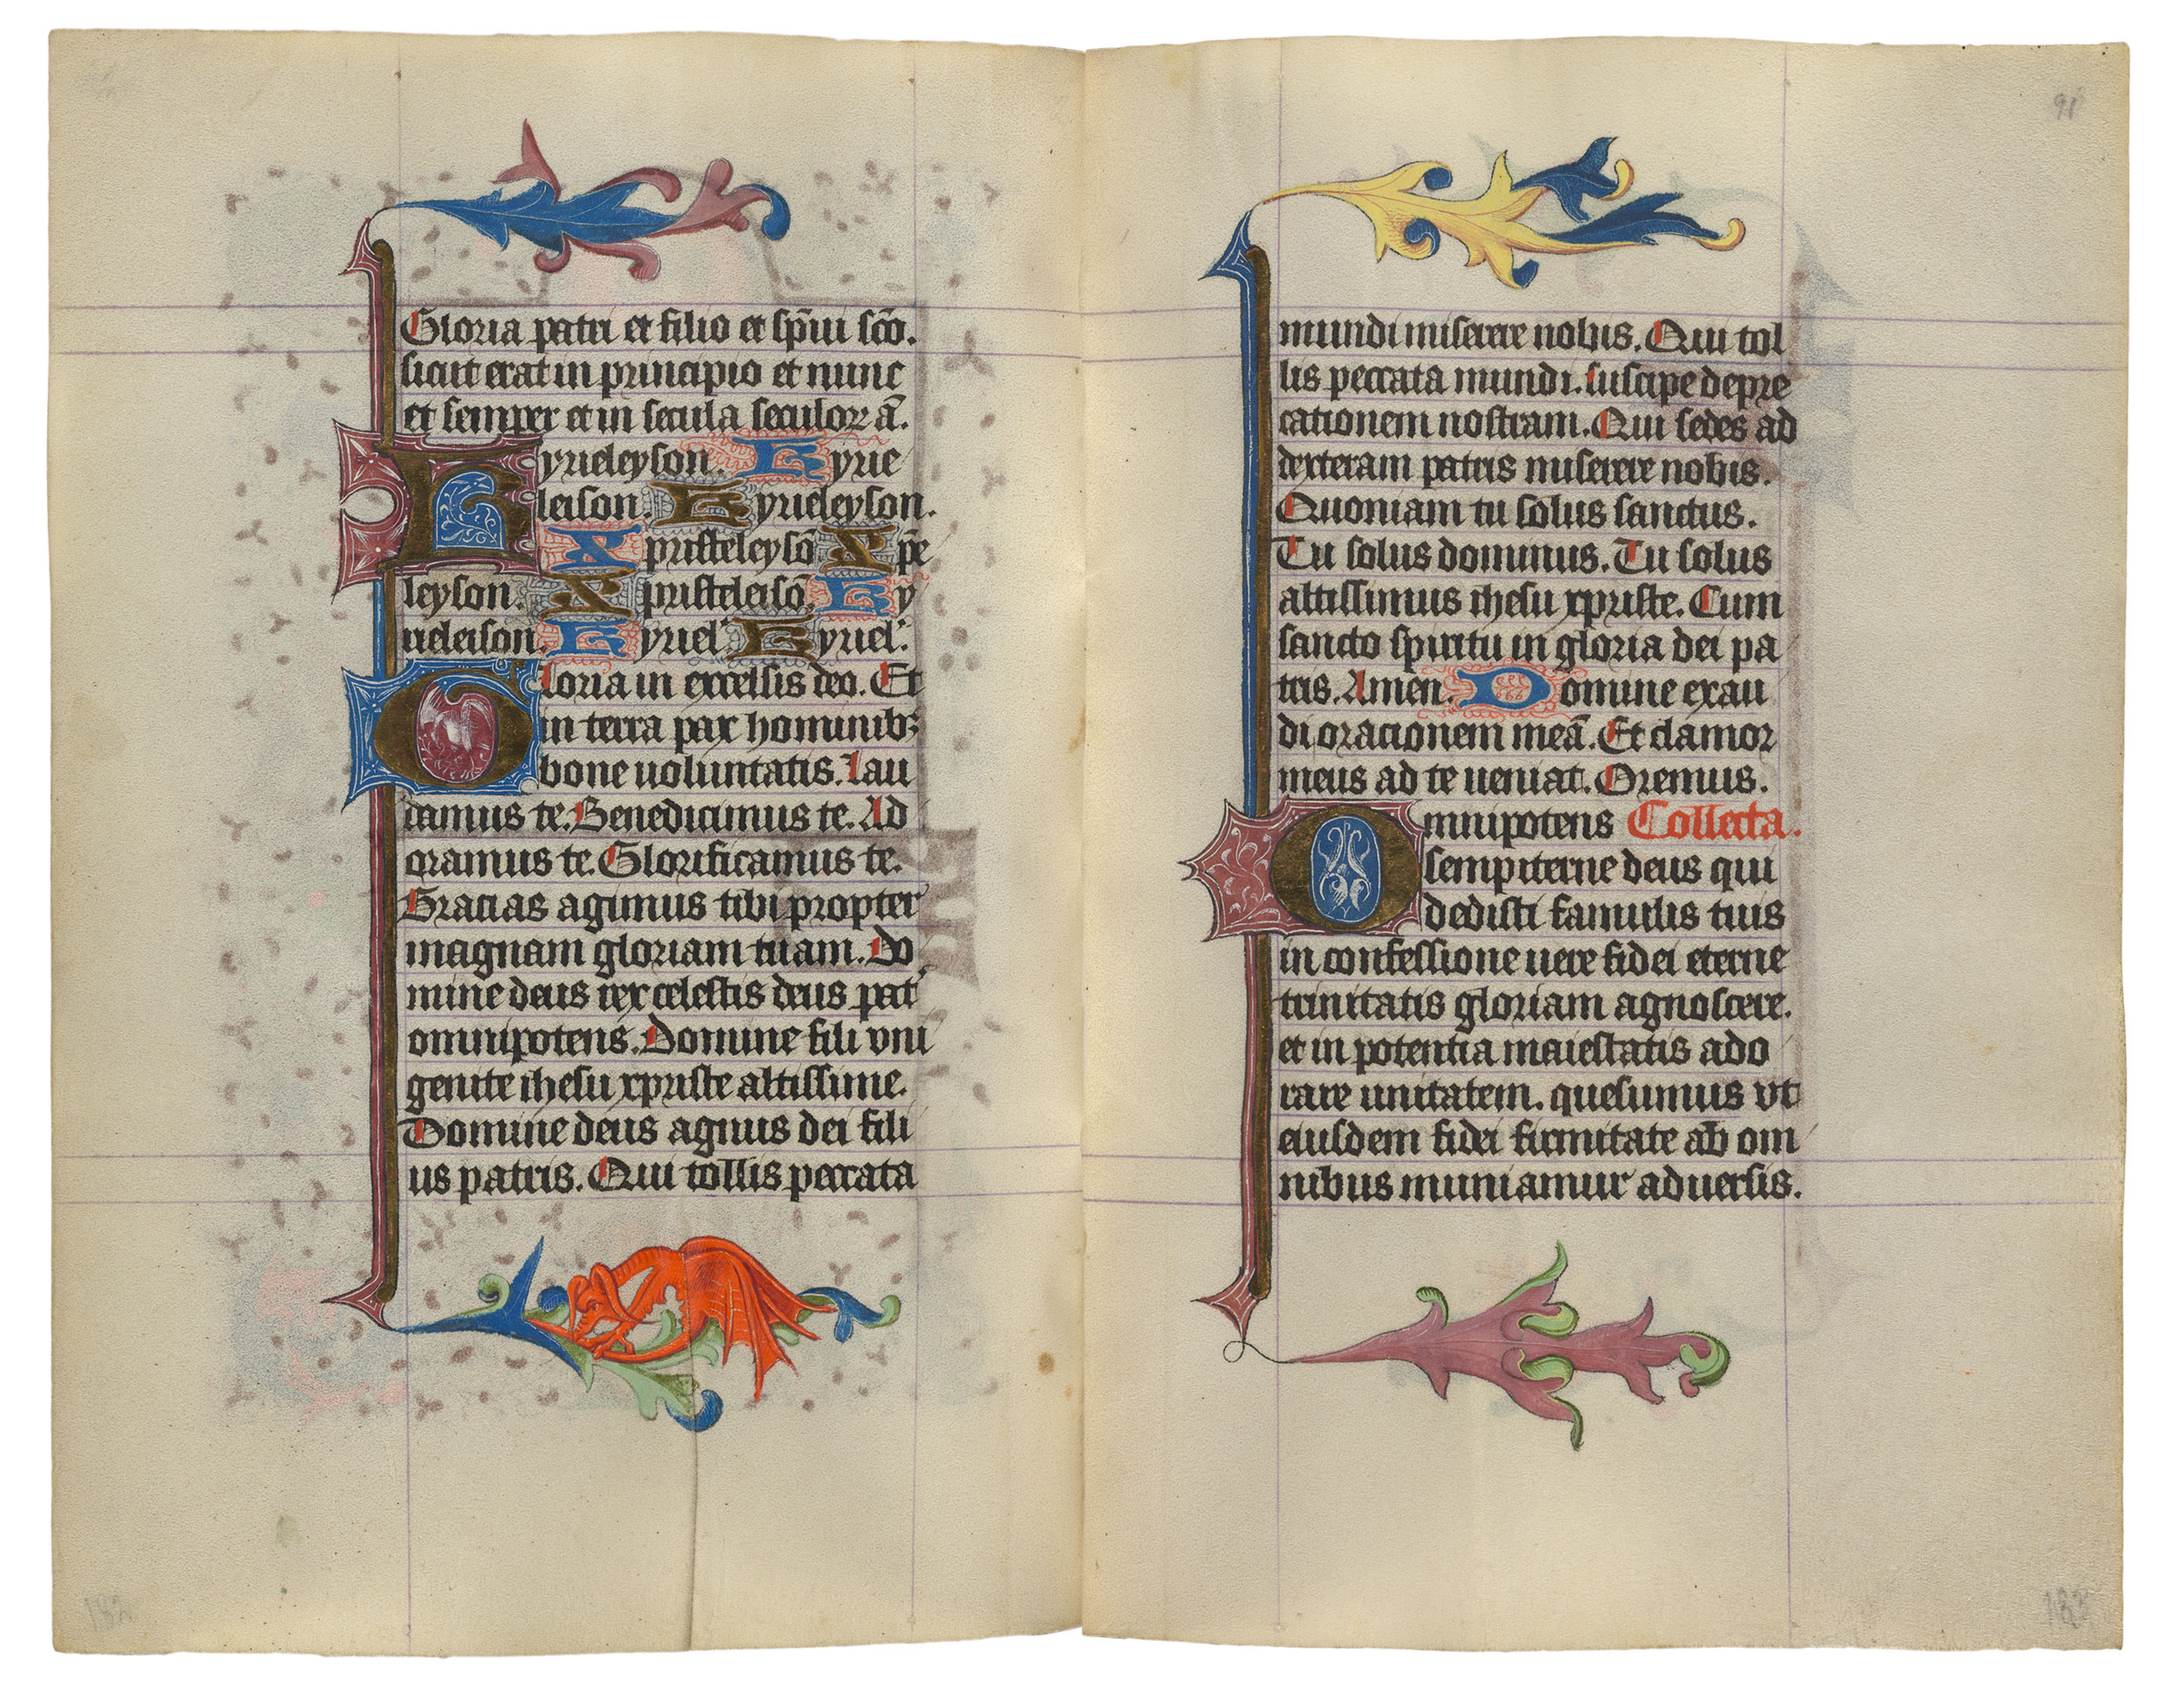 Gloria patri et filio et sp̄iui sc̄o.
sicut erat in principio et nunc
et semper et in secula seculoꝝ ā.
Kyrieleyson. Kyrie
leison. Kyrieleyson.
Xpristeleysō Xp̄e
leyson. Xpristeleisō. Ky
rieleison. Kyriel'. Kyriel'.
Gloria in excelsis deo. Et
in terra pax hominibꝫ
bone uoluntatis. Lau
damus te. Benedicimus te. Ad
oramus te. Glorificamus te.
Gracias agimus tibi propter
magnam gloriam tuam. Do
mine deus rex celestis deus pat'
omnipotens. Domine fili vni
genite ihesu xpriste altissime.
Domine deus agnus dei fili
us patris. Qui tollis peccata
182
91
mundi miserere nobis. Qui tol
lis peccata mundi. suscipe depre
cationem nostram. Qui sedes ad
dexteram patris miserere nobis.
Quoniam tu solus sanctus.
Tu solus dominus. Tu solus
altissimus ihesu xpriste. Cum
sancto spiritu in gloria dei pa
tris. Amen. Domine exau
di oracionem meā. Et clamor
meus ad te ueniat. Oremus.
Omnipotens Collecta.
sempiterne deus qui
dedisti famulis tuis
in confessione uere fidei eterne
trinitatis gloriam agnoscere.
et in potentia maiestatis ado
rare unitatem. quesumus vt
eiusdem fidei firmitate ab om
nibus muniamur aduersis.
183